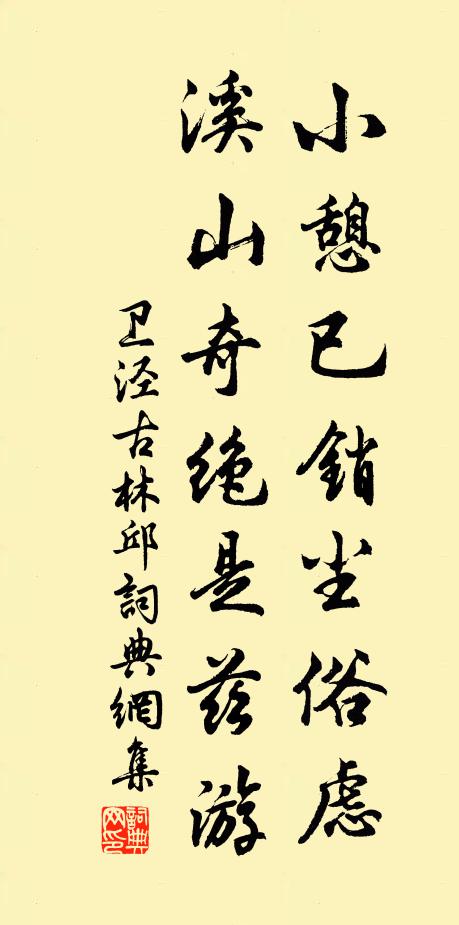 小憩已銷尘俗慮
溪山奇絶是茲游
卫泾古林邱詞典網集
詞典
网印